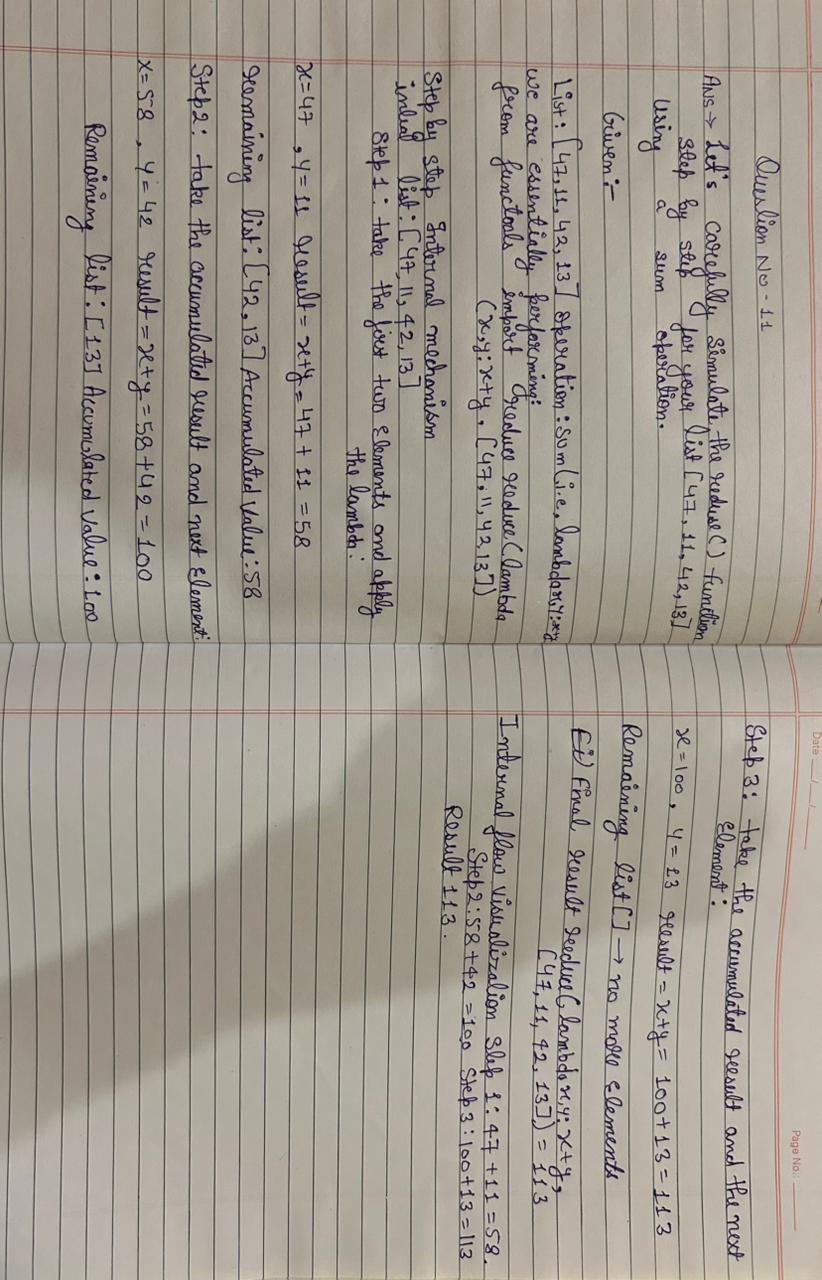 Question No - 11
Ans → Let's carefully simulate, the reduse() function
step by step for your list [47, 11, 42, 13]
using a sum operation.
Given:-
List: [47, 11, 42, 13] operation: Sum (i.e, lambda x, y: x+y
we are essentially performing:
from functools import reduce reduce (lambda
(x, y: x+y, [47, 11, 42, 13])
Step by step Internal mechanism
initial list: [47, 11, 42, 13]
Step 1: take the first two elements and apply
the lambda:
x=47 , y=11 result = x+y = 47 + 11 = 58
Remaining list: [42, 13] Accumulated Value: 58
Step 2: take the accumulated result and next element:
x=58, y=42 result = x+y = 58+42 = 100
Remaining list: [13] Accumulated value: 100
Date __/__/__
Page No.: ____
Step 3: take the accumulated result and the next
Element:
x=100, y=13 result = x+y = 100+13 = 113
Remaining list [] → no more elements
Final result reduce (lambda x, y: x+y,
[47, 11, 42, 13]) = 113
Internal flow visualization Step 1: 47 + 11 = 58.
Step 2: 58 + 42 = 100 Step 3: 100 + 13 = 113
Result 113.